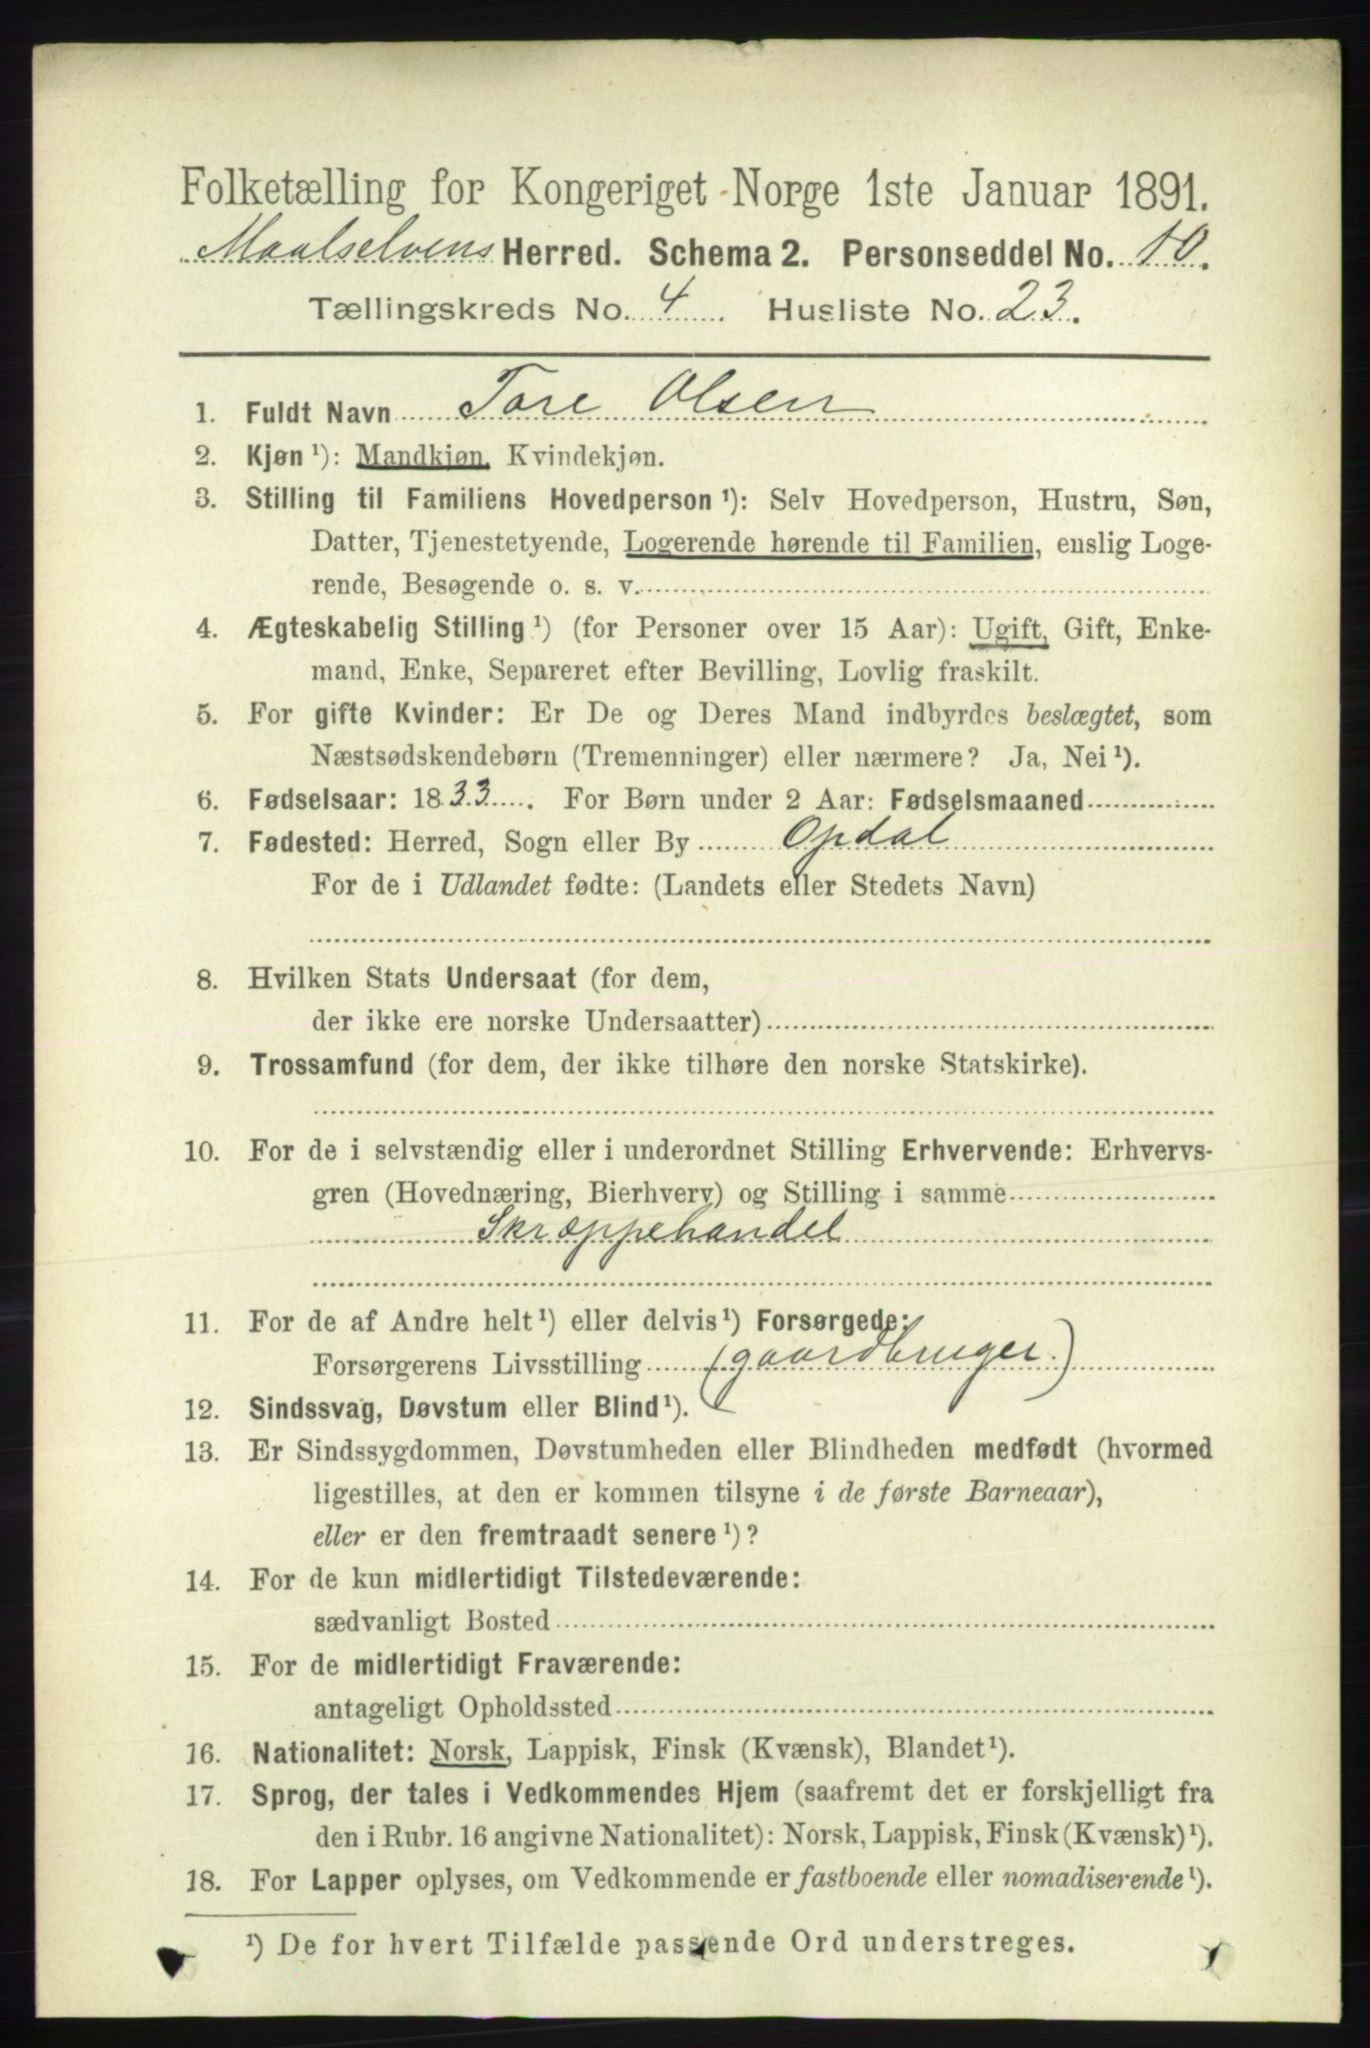 Folketælling for Kongeriget Norge 1ste Januar 1891.
Maalselvens Herred. Schema 2. Personseddel No. 10.
Tællingskreds No. 4 Husliste No. 23.
1. Fuldt Navn Tore Olsen
2. Kjøn ¹): Mandkjøn, Kvindekjøn.
3. Stilling til Familiens Hovedperson ¹): Selv Hovedperson, Hustru, Søn,
Datter, Tjenestetyende, Logerende hørende til Familien, enslig Loge-
rende, Besøgende o. s. v.
4. Ægteskabelig Stilling ¹) (for Personer over 15 Aar): Ugift, Gift, Enke-
mand, Enke, Separeret efter Bevilling, Lovlig fraskilt.
5. For gifte Kvinder: Er De og Deres Mand indbyrdes beslægtet, som
Næstsødskendebørn (Tremenninger) eller nærmere? Ja, Nei ¹).
6. Fødselsaar: 1833. For Børn under 2 Aar: Fødselsmaaned
7. Fødested: Herred, Sogn eller By Opdal
For de i Udlandet fødte: (Landets eller Stedets Navn)
8. Hvilken Stats Undersaat (for dem,
der ikke ere norske Undersaatter)
9. Trossamfund (for dem, der ikke tilhøre den norske Statskirke).
10. For de i selvstændig eller i underordnet Stilling Erhvervende: Erhvervs-
gren (Hovednæring, Bierhverv) og Stilling i samme
Skræppehandel
11. For de af Andre helt ¹) eller delvis ¹) Forsørgede:
Forsørgerens Livsstilling (gaardbruger.)
12. Sindssvag, Døvstum eller Blind ¹).
13. Er Sindssygdommen, Døvstumheden eller Blindheden medfødt (hvormed
ligestilles, at den er kommen tilsyne i de første Barneaar),
eller er den fremtraadt senere ¹)?
14. For de kun midlertidigt Tilstedeværende:
sædvanligt Bosted
15. For de midlertidigt Fraværende:
antageligt Opholdssted
16. Nationalitet: Norsk, Lappisk, Finsk (Kvænsk), Blandet ¹).
17. Sprog, der tales i Vedkommendes Hjem (saafremt det er forskjelligt fra
den i Rubr. 16 angivne Nationalitet): Norsk, Lappisk, Finsk (Kvænsk) ¹).
18. For Lapper oplyses, om Vedkommende er fastboende eller nomadiserende ¹).
¹) De for hvert Tilfælde passende Ord understreges.